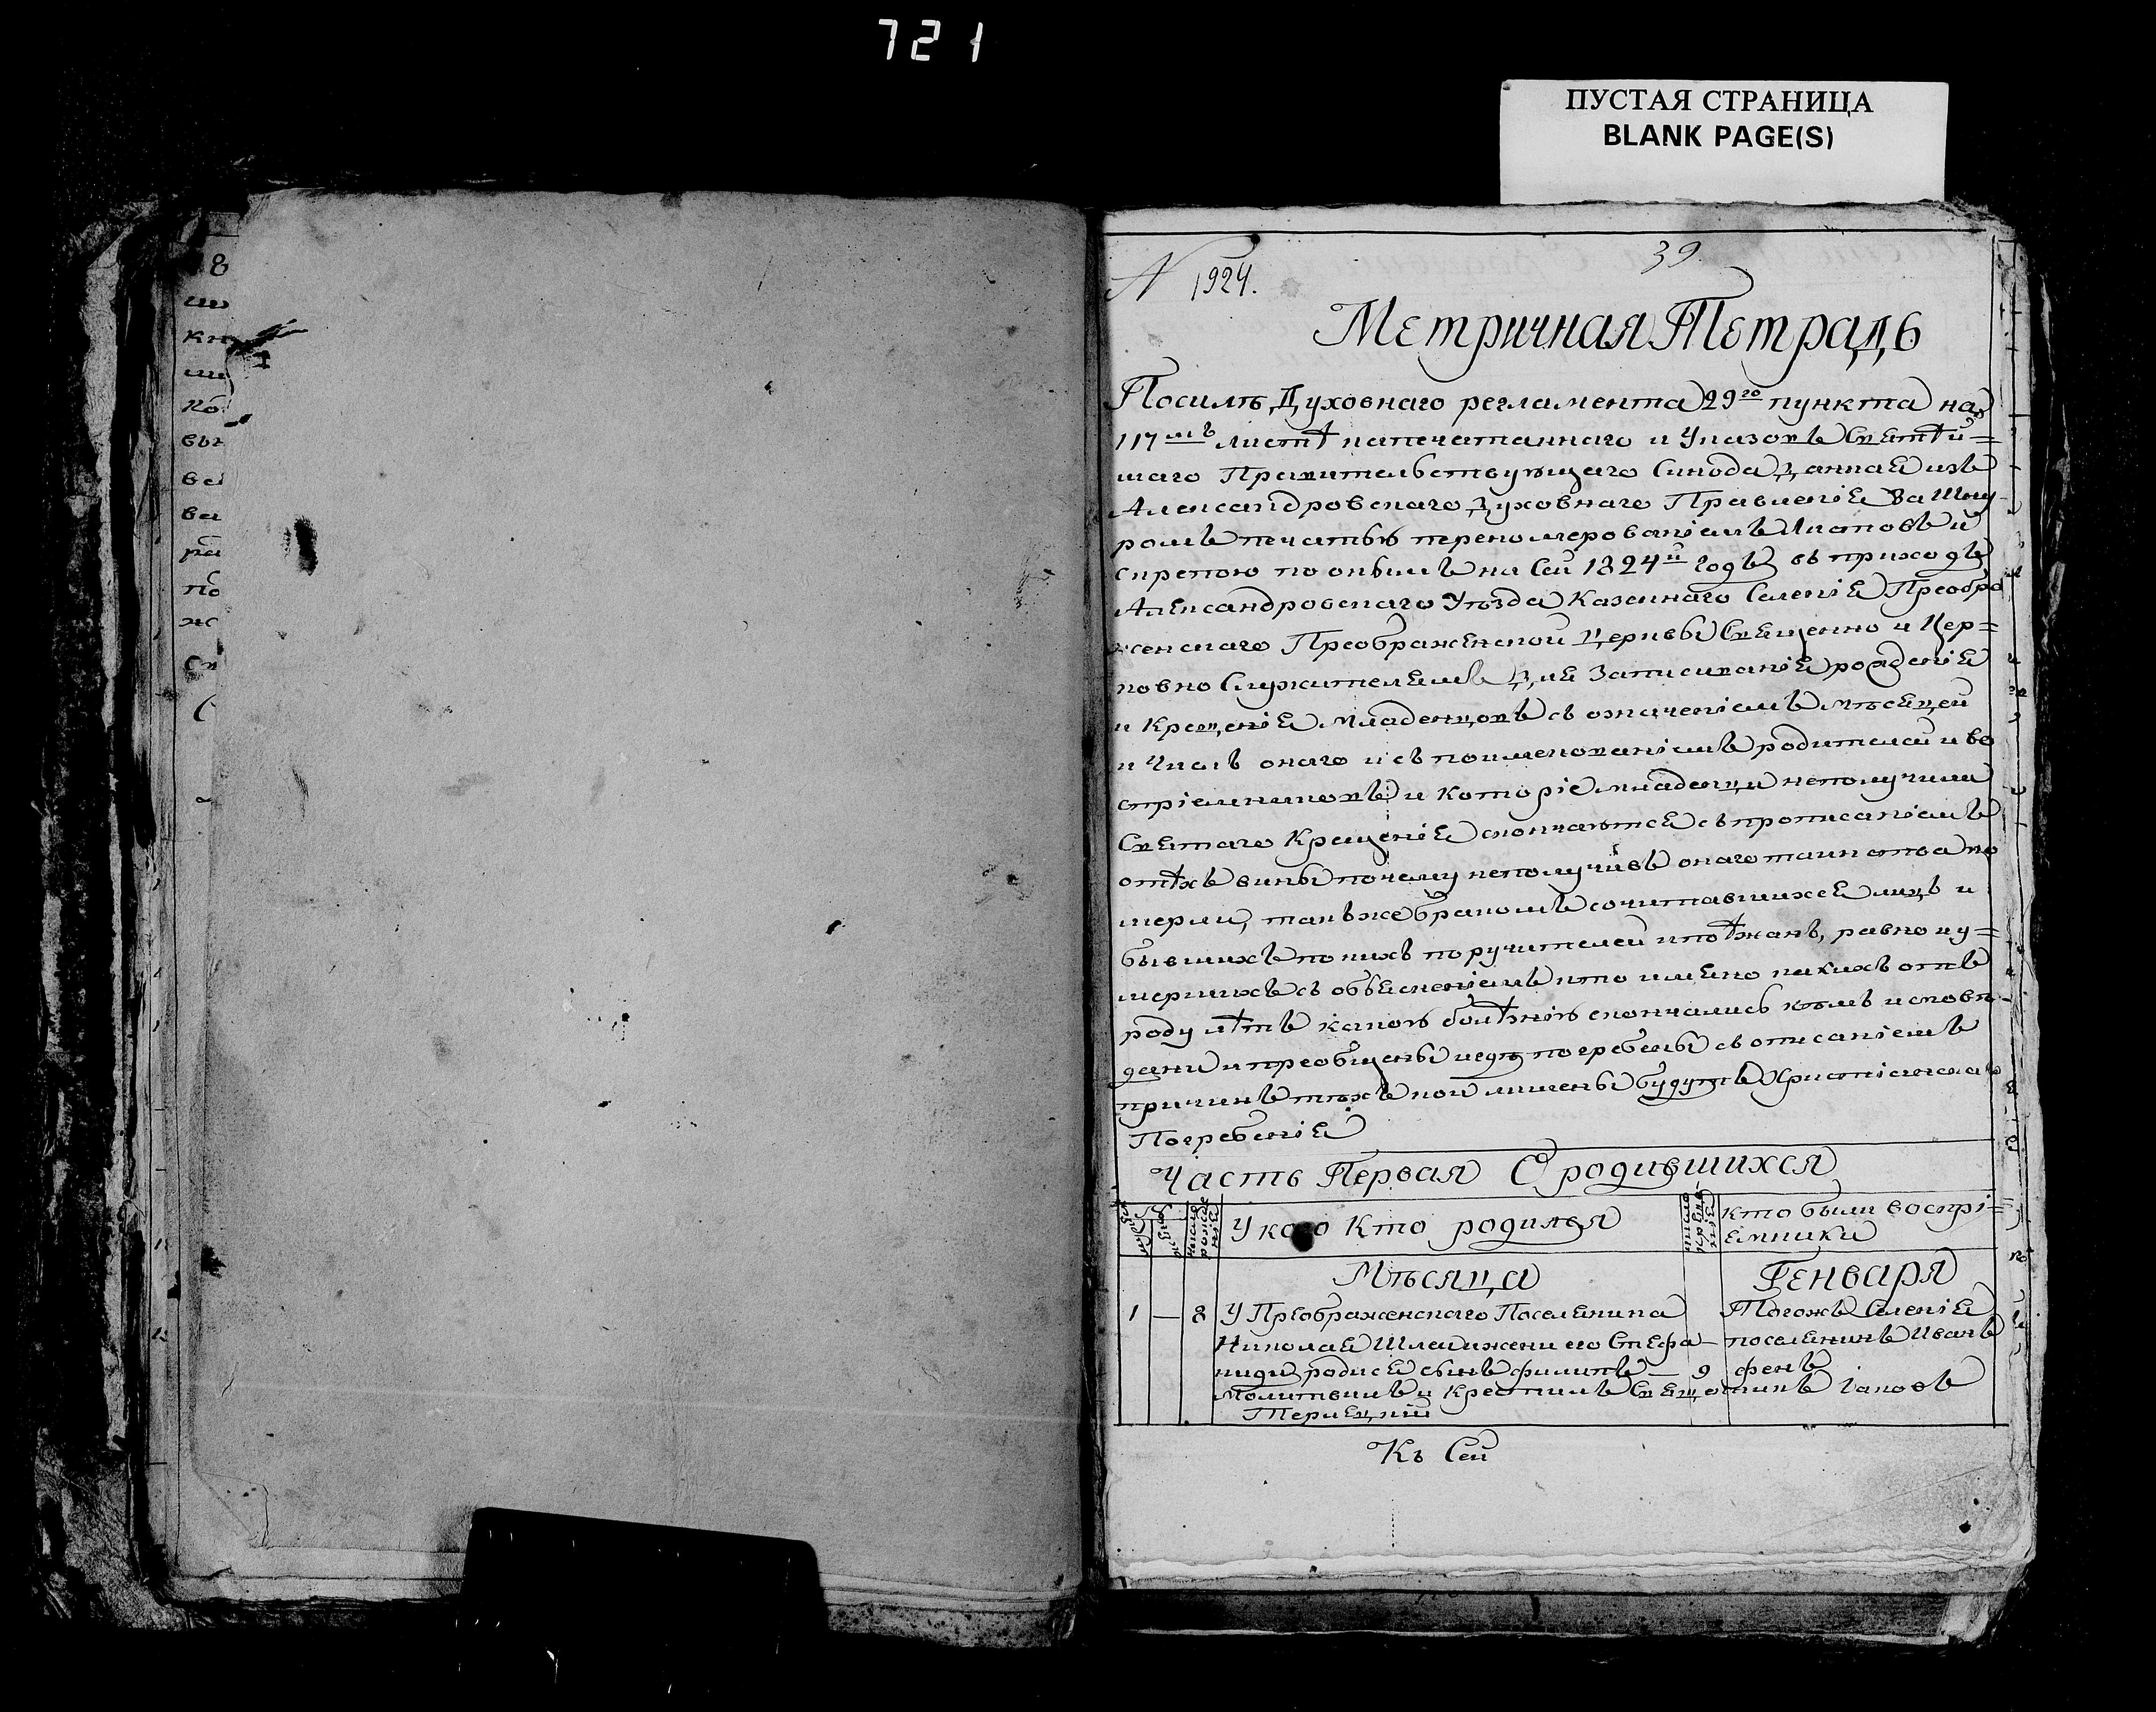 721
ПУСТАЯ СТРАНИЦА
BLANK PAGE(S)
39
N 1924.
Метричная Тетрадь
Посилѣ Духовнаго регламента 29го пункта на
117мъ листѣ напечатаннаго и Указовъ Святѣй=
шаго Правительствующаго Синода данная изъ
Александровскаго Духовнаго Правленіе За Шну-
ромъ печатью перенумерованіемъ листовъ и
скрепою по онымъ на Сей 1824й годъ въ приходъ
Александровскаго Уѣзда Казеннаго Селеніе Преобра
женскаго Преображенской церквы Священно и Цер=
ковно Служителемъ для Записиваніе рожденіе
и Крещеніе младенцовъ съ означеніемъ мѣсяцей
и Числъ онаго и съ поименованіемъ родителей и во
спріемниковъ и которіе младенци неполучили
Святаго Крещеніе скончаются съ прописаніемъ
отѣхъ вины почему неполучивъ онаго таинства по
мерли, такъже бракомъ сочитавшихся лицъ и
бывшихъ по нихъ поручителей и поѣжанъ, равно и у=
мершихъ съ объясненіемъ кто имяно какихъ отъ
роду лѣтъ какою болѣзнію скончались кѣмъ исповѣ-
дани и преобщены и гдѣ погребены съ описаніемъ
причинъ тѣхъ кои лишены будутъ Христіанскаго
Погребеніе
Часть Первая О родившихся
число рожденія
У кого Кто родился
число крещенія
кто были воспрі=
емники
Мѣсяца
Генваря
1 — 8 У Преображенскаго Поселенина
Тогожъ Селеніе
Николае Шлаи жени его Стефа—
поселенинъ Иванъ
ниди родися сынъ филипъ — 9
фенъ
Молитвилъ и Крестилъ Священникъ Іаковъ
Терлецкій
Къ Сей